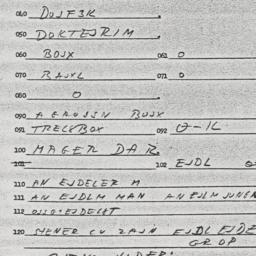 040 DOJF3K
050 DOKTEJRIM
060 BOJX 061 0
070 BAJXL 071 0
080 0
090 A GROJSN BOJX
091 TRELKBOX 092 0-1L
100 MAGER DAR
101 102 EJDL
110 AN EJDELER M
111 AN EJDLM MAN AN EJLM JUNGN
112
120 SJENER CU ZAJN EJDL EJDE
GROP